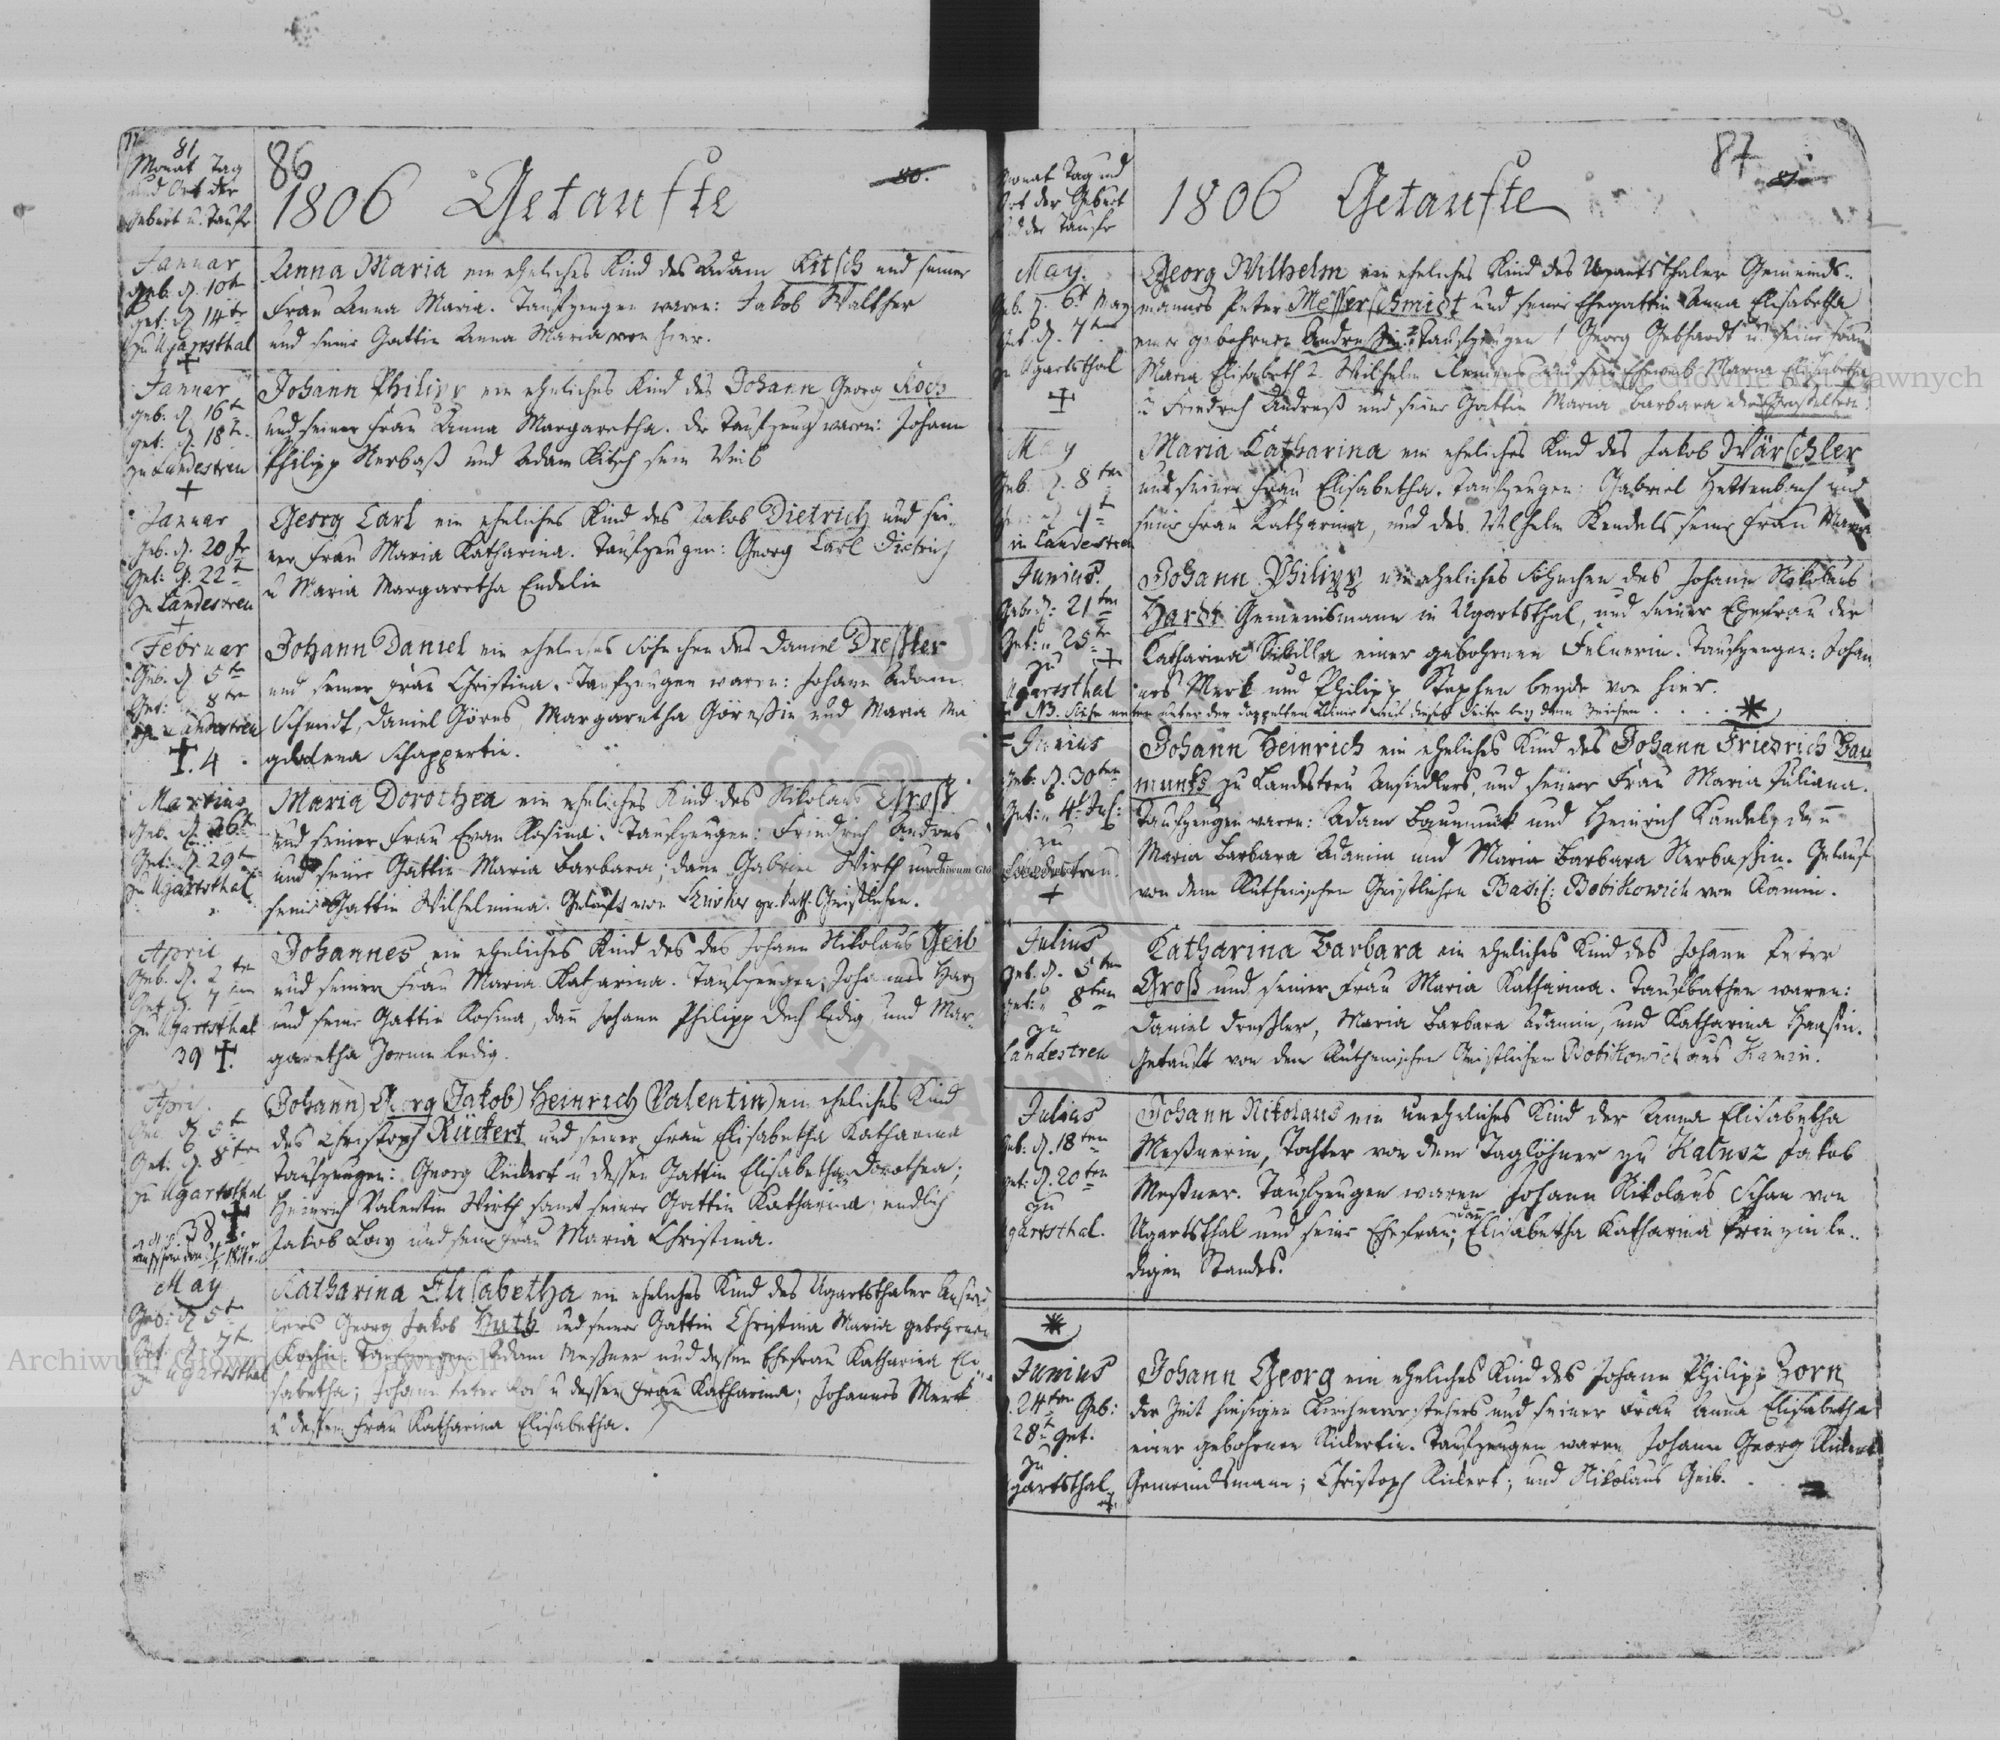 81
Monat Tag
und Ort der
Geburt u. Taufe
86
1806 Getaufte
80.
Januar
geb. d. 10t
get: d. 14te
zu Ugartsthal
Anna Maria ein eheliches Kind des Adam Kitsch und seiner
Frau Anna Maria. Taufzeugen waren: Jakob Walther
und seine Gattin Anna Maria von hier.
Januar
geb. d. 16t
get: d. 18t
zu Landestreu
Johann Philipp ein eheliches Kind des Johann Georg Koch
und seiner Frau Anna Margaretha. Die Taufzeug waren: Johann
Philipp Nerbaß und Adam Kitsch sein Weib
Januar
Geb. d. 20t
Get: d. 22t
zu Landestreu
Georg Carl ein eheliches Kind des Jakob Dietrich und sei-
ner Frau Maria Katharina. Taufzeugen: Georg Carl Dietrich
u Maria Margaretha Endelin
Februar
Geb. d. 5te
Get: 8ten
zu Landestreu
4
Johann Daniel ein eheliches Söhnchen des Daniel Dreßler
und seiner Frau Christina. Taufzeugen waren: Johann Adam
Schmidt, Daniel Göres, Margaretha Göreßin und Maria Ma
gdalena Schappertin.
Martius
Geb. d. 26t
Get: d. 29t
zu Ugartsthal
Maria Dorothea ein eheliches Kind des Nikolaus Groß
und seiner Frau Evan Rosina. Taufzeugen: Friedrich Andres
und seine Gattin Maria Barbara; dann Gabriel Wirth und
seine Gattin Wilhelmina. Getauft von gr. kath. Geistlichen.
April
Geb. d. 2ten
Get. d. 7ten
zu Ugartsthal
39
Johannes ein eheliches Kind des des Johann Nikolaus Geib
und seiner Frau Maria Katharina. Taufzeugen: Johannes Harz
und seine Gattin Rosina, dann Johann Philipp Dech ledig, und Mar-
garetha Jornin ledig.
April
d. 5te
Get. d. 8ten
zu Ugartsthal
38
(Johann) Georg (Jakob) Heinrich (Valentin) ein eheliches Kind
des Christoph Rückert und seiner Frau Elisabetha Katharina
Taufzeugen: Georg Rückert u dessen Gattin Elisabetha Dorothea;
Heinrich Valentin Wirth samt seiner Gattin Katharina; endlich
Jakob Low und seine Frau Maria Christina.
May
Geb: d. 5t
Get: d. 7t
zu Ugartsthal
Katharina Elisabetha ein eheliches Kind des Ugartsthaler Ansied
lers Georg Jakob Huth und seiner Gattin Christina Maria gebohrnen
Kochin. Taufzeugen Adam Meßner und dessen Ehefrau Katharina Eli
sabetha; Johann Peter Koch u dessen Frau Katharina; Johannes Merk
u dessen Frau Katharina Elisabetha.
Monat Tag und
Ort der Geburt
und der Taufe
1806 Getaufte
87
81
May.
Geb. d. 6t May
Get. d. 7te
zu Ugartsthal
Georg Wilhelm ein eheliches Kind des Ugartsthaler Gemeinds-
mannes Peter Messerschmidt und seiner Ehegattin Anna Elisabetha
einer gebohrnen Andreßin. Taufzeugen 1 Georg Gebhardt u seine Frau
Maria Elisabeth 2 Wilhelm Clemens und sein Eheweib Maria Elisabetha
3 Friedrich Andreß und seine Gattin Maria Barbara die Großeltern.
May
Geb. d. 8ten
d. 9t
in Landestreu
Maria Katharina ein eheliches Kind des Jakob Wärschler
und seiner Frau Elisabetha. Taufzeugen: Gabriel Hettenbach und
seine Frau Katharina, und des Wilhelm Kendels seine Frau Maria
Junius.
Geb. d. 21ten
Get: 25te
zu
Ugartsthal
Johann Philipp ein eheliches Söhnchen des Johann Nikolaus
Hardt Gemeinsmann in Ugartsthal, und seiner Ehefrau der
Katharina Sibilla einer gebohrnen Felnerin. Taufzeugen: Johan
nes Merk und Philipp Stephen beyde von hier.
NB. Siehe unten unter der doppelten Linie auf dieser Seite bey dem Zeichen . . . . *
Junius
geb. d. 30ten
Get: 4t Jul:
zu
Landestreu.
Johann Heinrich ein eheliches Kind des Johann Friedrich Bau
munks zu Landestreu Ansiedlers, und seiner Frau Maria Juliana.
Taufzeugen waren: Adam Baumunk und Heinrich Kandel, dann
Maria Barbara Adamin und Maria Barbara Nerbaßin. Getauft
von dem Ruthenischen Geistlichen Basil: Bobikowich von Kamin.
Julius
Geb. d. 5ten
Get: 8ten
zu
Landestreu
Katharina Barbara ein eheliches Kind des Johann Peter
Groß und seiner Frau Maria Katharina. Taufbathen waren:
Daniel Dreßler, Maria Barbara Adamin, und Katharina Haasin.
Getauft von dem Ruthenischen Geistlichen Bobikowich aus Kamin.
Julius
Geb. d. 18ten
get: d. 20ten
zu
Ugartsthal.
Johann Nikolaus ein uneheliches Kind der Anna Elisabetha
Meßnerin, Tochter von dem Taglöhner zu Kalusz Jakob
Meßner. Taufzeugen waren Johann Nikolaus Schan von
Ugartsthal und seine Ehefrau; dann Elisabetha Katharina Prinzin le-
digen Standes.
*
Junius
d. 24ten Geb:
28t get.
zu
Ugartsthal
Johann Georg ein eheliches Kind des Johann Philipp Zorn
der Zeit hiesigen Kirchenvorstehers und seiner Frau Anna Elisabetha
einer gebohrnen Rickertin. Taufzeugen waren Johann Georg Rickert
Gemeindsmann; Christoph Rickert; und Nikolaus Geib.
Archiwum Główne Akt Dawnych
Archiwum Główne Akt Dawnych